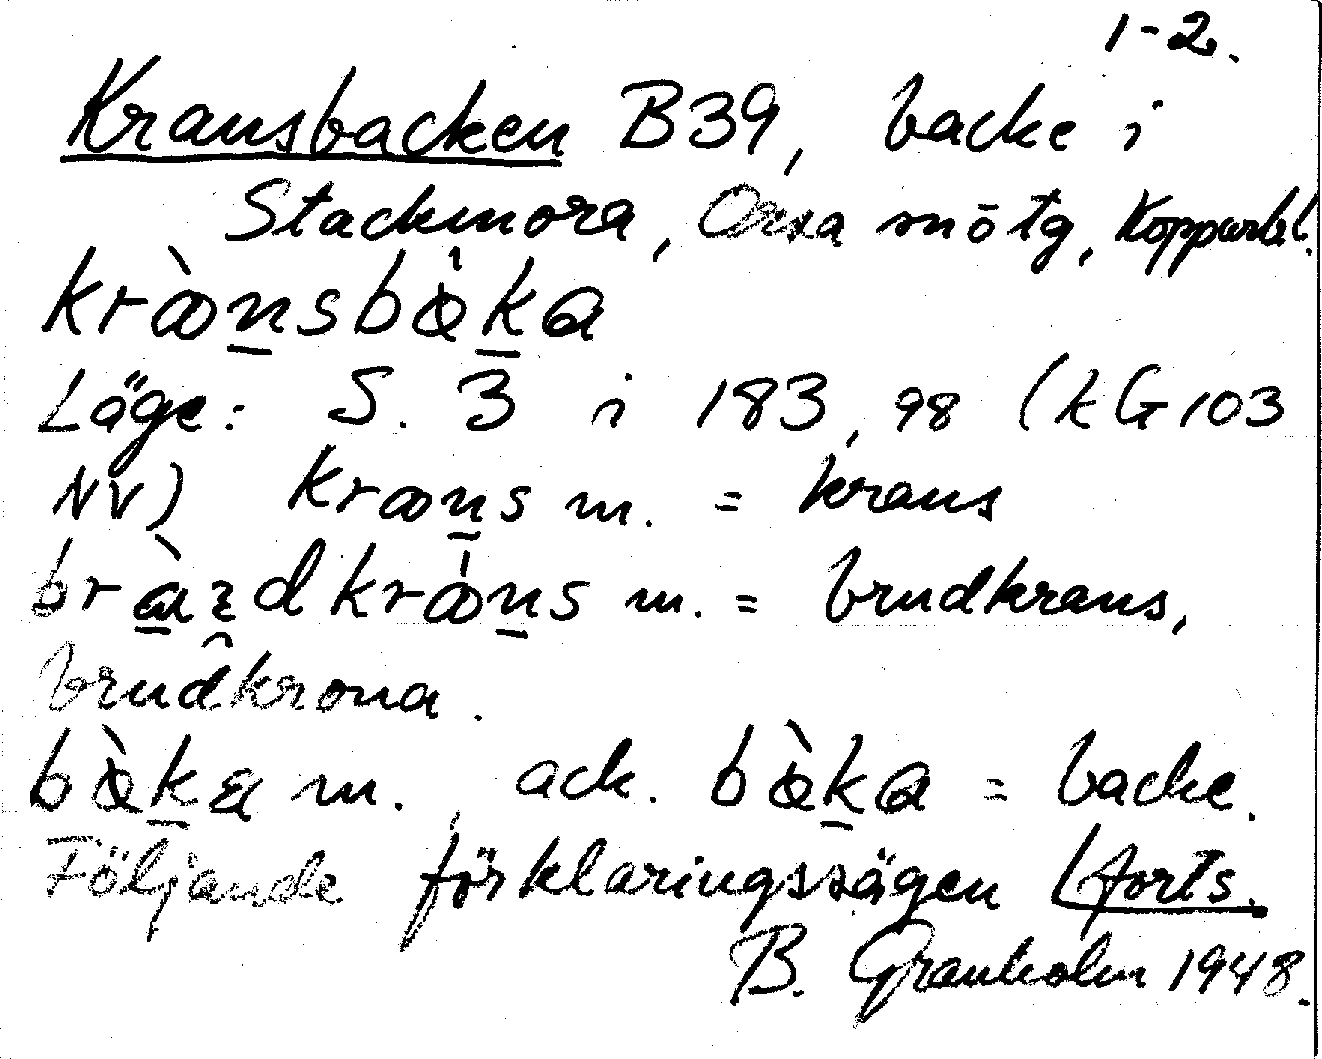 1-2.
Kransbacken B39, backe i
Stackmora, Orsa snötg, Kopparbl.
kràn̲sbàk̲a
Läge: S. 3 i 183, 98 (kG103
NV) kran̲s m. = krans
kràn̲s m. = brudkrans,
brudkrona.
bàk̲ɑ m., ack. bàk̲a = backe.
Följande förklaringssägen forts.
B. Granholm 1948.